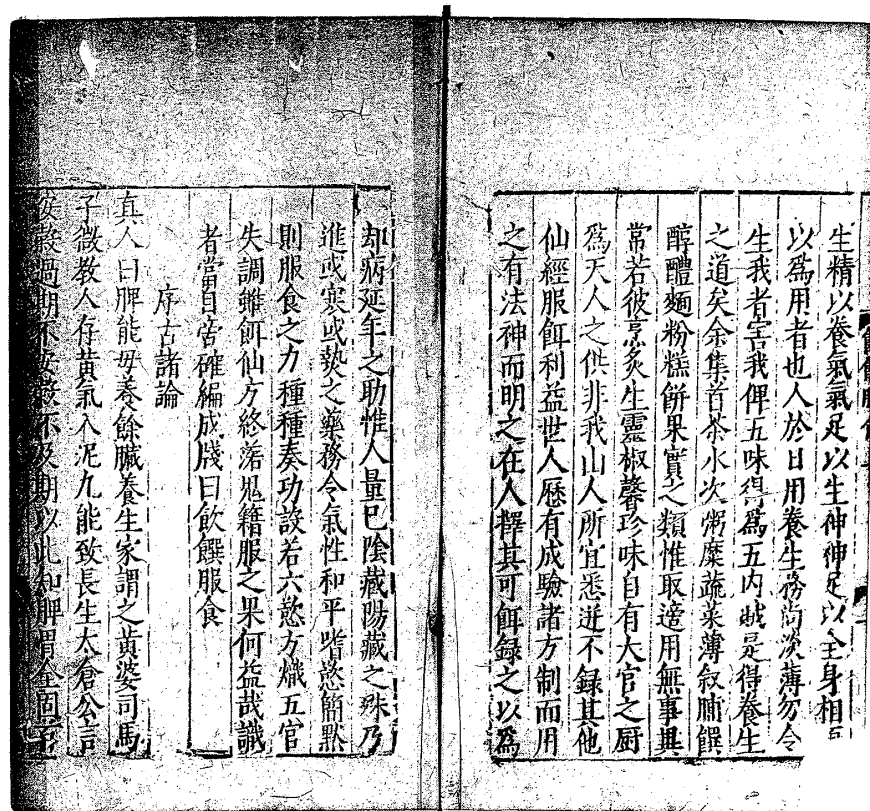 生精以養氣氣足以生神神足以全身相
以爲用者也人於日用養生務尚淡薄勿令
生我者害我俾五味得爲五內賊是得養生
之道矣余集首茶水次粥糜蔬菜薄叙脯饌
醇醴麵粉糕餅果實之類惟取適用無事異
常若彼烹炙生靈椒馨珍味自有大官之厨
爲天人之供非我山人所宜悉迸不錄其他
仙經服餌利益世人歷有成驗諸方制而用
之有法神而明之在人擇其可餌錄之以爲
却病延年之助惟人量巳陰藏陽藏之殊乃
進或寒或𤍠之藥務令氣性和平嗜慾簡黙
則服食之力種種奏功設若六慾方熾五官
失調雖餌仙方終落鬼籍服之果何益哉識
者當自杏確編成牋曰飲饌服食
序古諸論
真人曰脾能母養餘臟養生家謂之黃婆司馬
子微教人存黃氣入泥丸能致長生太倉公言
安穀過期不安穀不及期以此知脾胃全固百